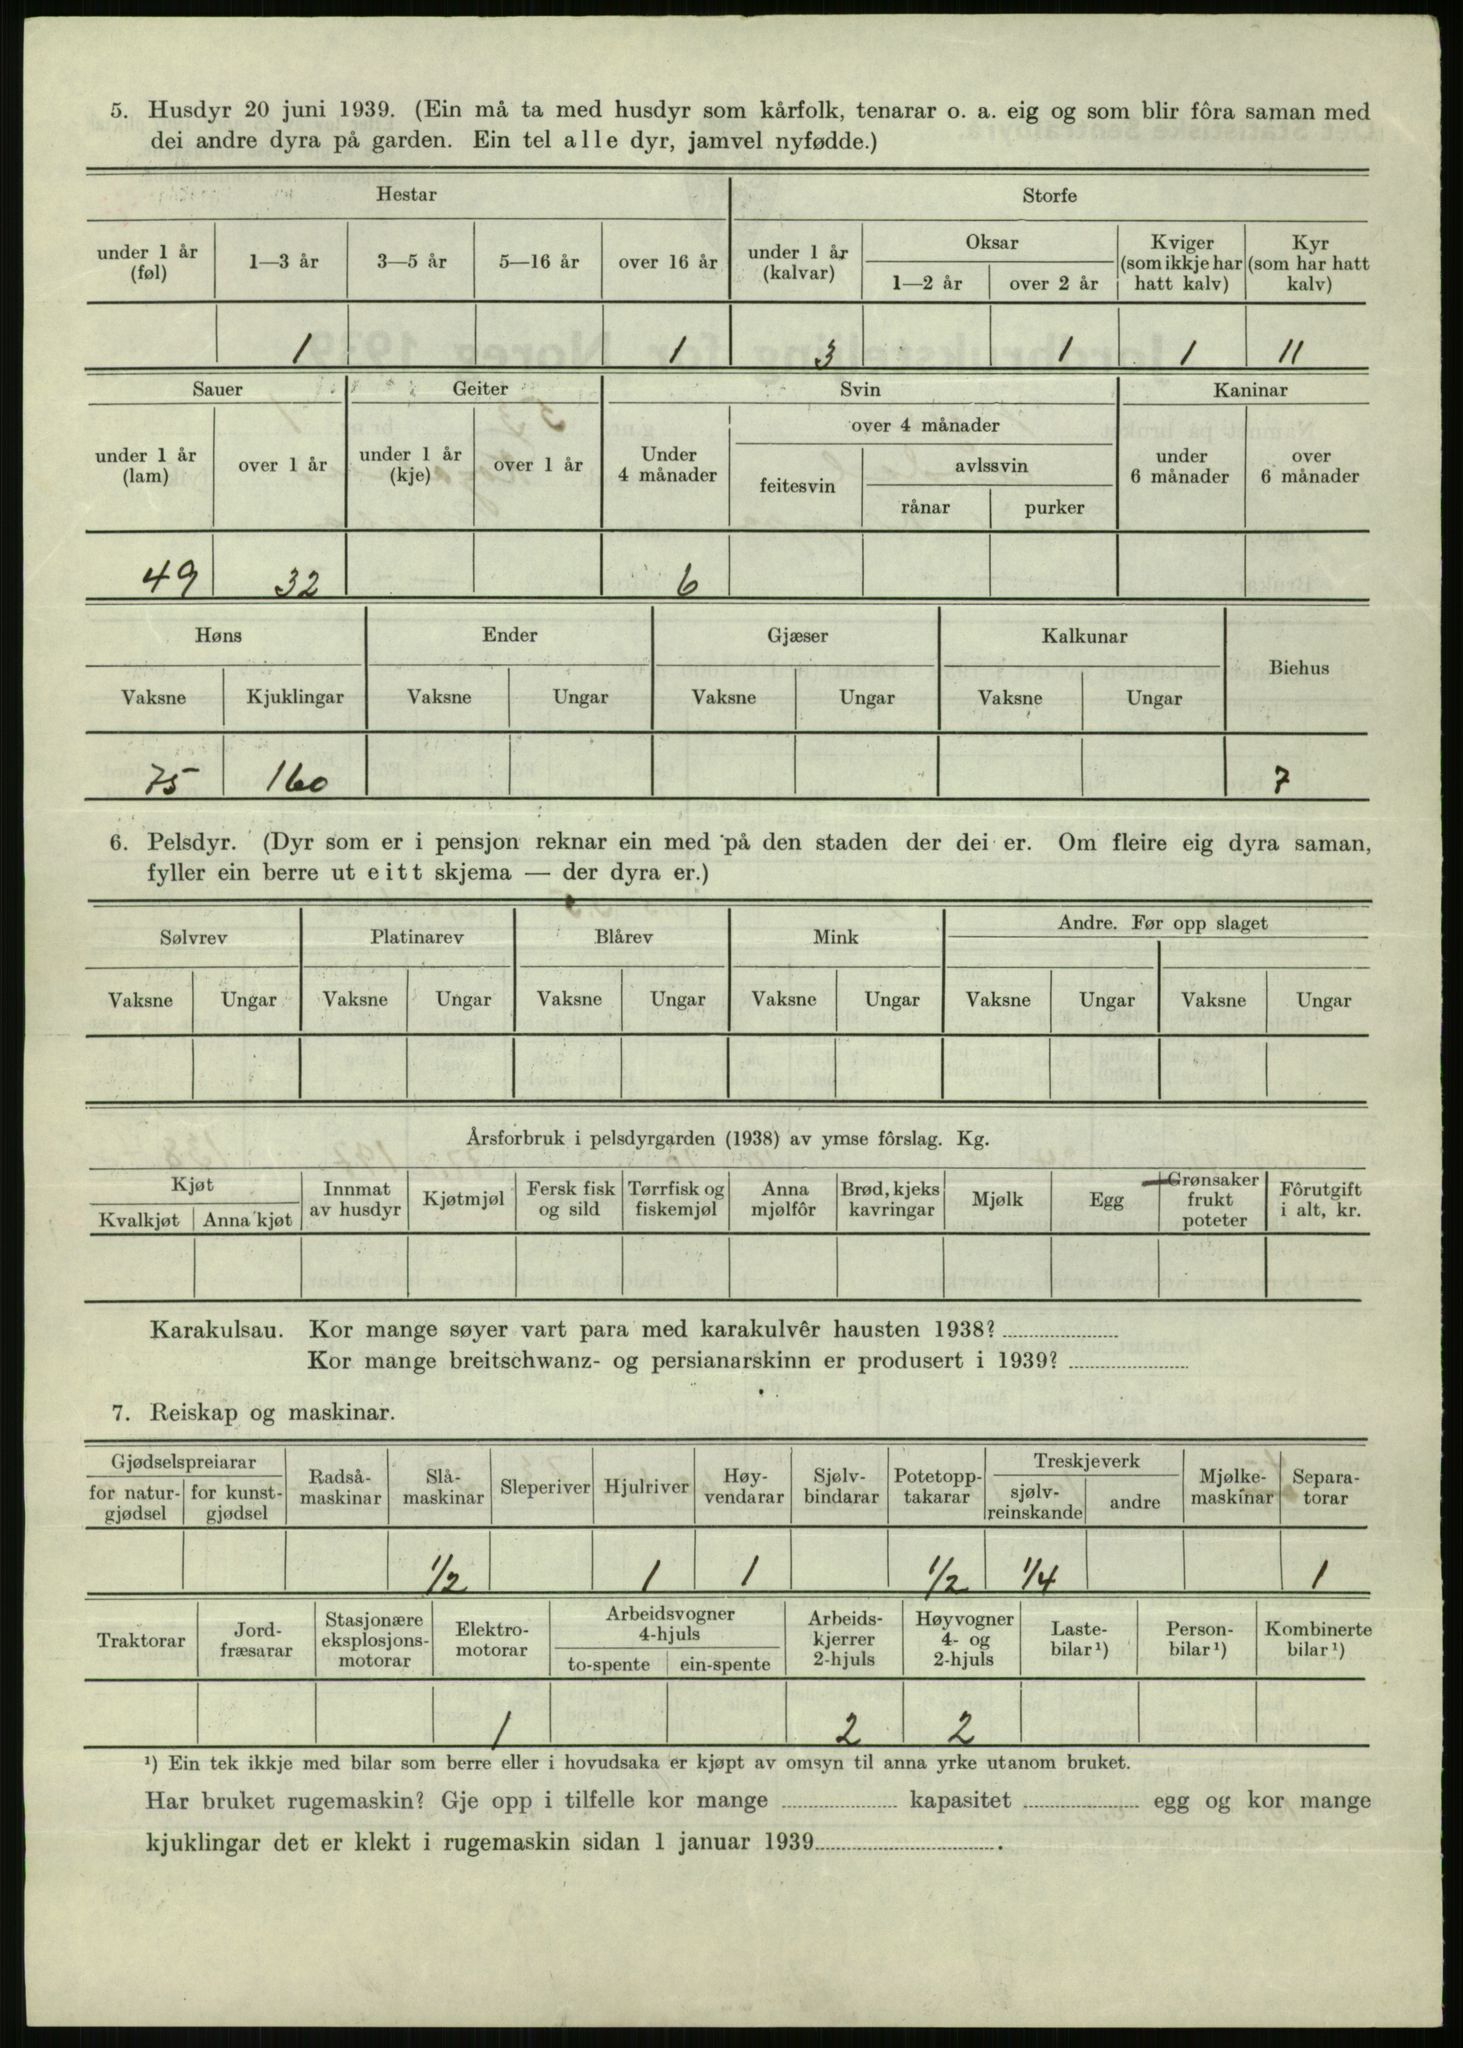 5. Husdyr 20 juni 1939. (Ein må ta med husdyr som kårfolk, tenarar o. a. eig og som blir fôra saman med
dei andre dyra på garden. Ein tel alle dyr, jamvel nyfødde.)
Hestar Storfe
under 1 år (føl) 1—3 år 3—5 år 5—16 år over 16 år under 1 år (kalvar) Oksar 1—2 år over 2 år Kviger (som ikkje har hatt kalv) Kyr (som har hatt kalv)
1 1 3 1 1 11
Sauer Geiter Svin Kaninar
under 1 år (lam) over 1 år under 1 år (kje) over 1 år Under 4 månader over 4 månader feitesvin avlssvin rånar purker under 6 månader over 6 månader
49 32 6
Høns Ender Gjæser Kalkunar Biehus
Vaksne Kjuklingar Vaksne Ungar Vaksne Ungar Vaksne Ungar
75 160 7
6. Pelsdyr. (Dyr som er i pensjon reknar ein med på den staden der dei er. Om fleire eig dyra saman,
fyller ein berre ut eitt skjema — der dyra er.)
Sølvrev Platinarev Blårev Mink Andre. Før opp slaget
Vaksne Ungar Vaksne Ungar Vaksne Ungar Vaksne Ungar Vaksne Ungar Vaksne Ungar
Årsforbruk i pelsdyrgarden (1938) av ymse fôrslag. Kg.
Kjøt Kvalkjøt Anna kjøt Innmat av husdyr Kjøtmjøl Fersk fisk og sild Tørrfisk og fiskemjøl Anna mjølfôr Brød, kjeks kavringar Mjølk Egg Grønsaker frukt poteter Fôrutgift i alt, kr.
Karakulsau. Kor mange søyer vart para med karakulvêr hausten 1938?
Kor mange breitschwanz- og persianarskinn er produsert i 1939?
7. Reiskap og maskinar.
Gjødselspreiarar for natur-gjødsel for kunst-gjødsel Radså-maskinar Slå-maskinar Sleperiver Hjulriver Høy-vendarar Sjølv-bindarar Potetopp-takarar Treskjeverk sjølv-reinskande andre Mjølke-maskinar Separa-torar
1/2 1 1 1/2 1/4 1
Traktorar Jord-fræsarar Stasjonære eksplosjons-motorar Elektro-motorar Arbeidsvogner 4-hjuls to-spente ein-spente Arbeids-kjerrer 2-hjuls Høyvogner 4- og 2-hjuls Laste-bilar ¹) Person-bilar ¹) Kombinerte bilar ¹)
1 2 2
¹) Ein tek ikkje med bilar som berre eller i hovudsaka er kjøpt av omsyn til anna yrke utanom bruket.
Har bruket rugemaskin? Gje opp i tilfelle kor mange kapasitet egg og kor mange
kjuklingar det er klekt i rugemaskin sidan 1 januar 1939 .